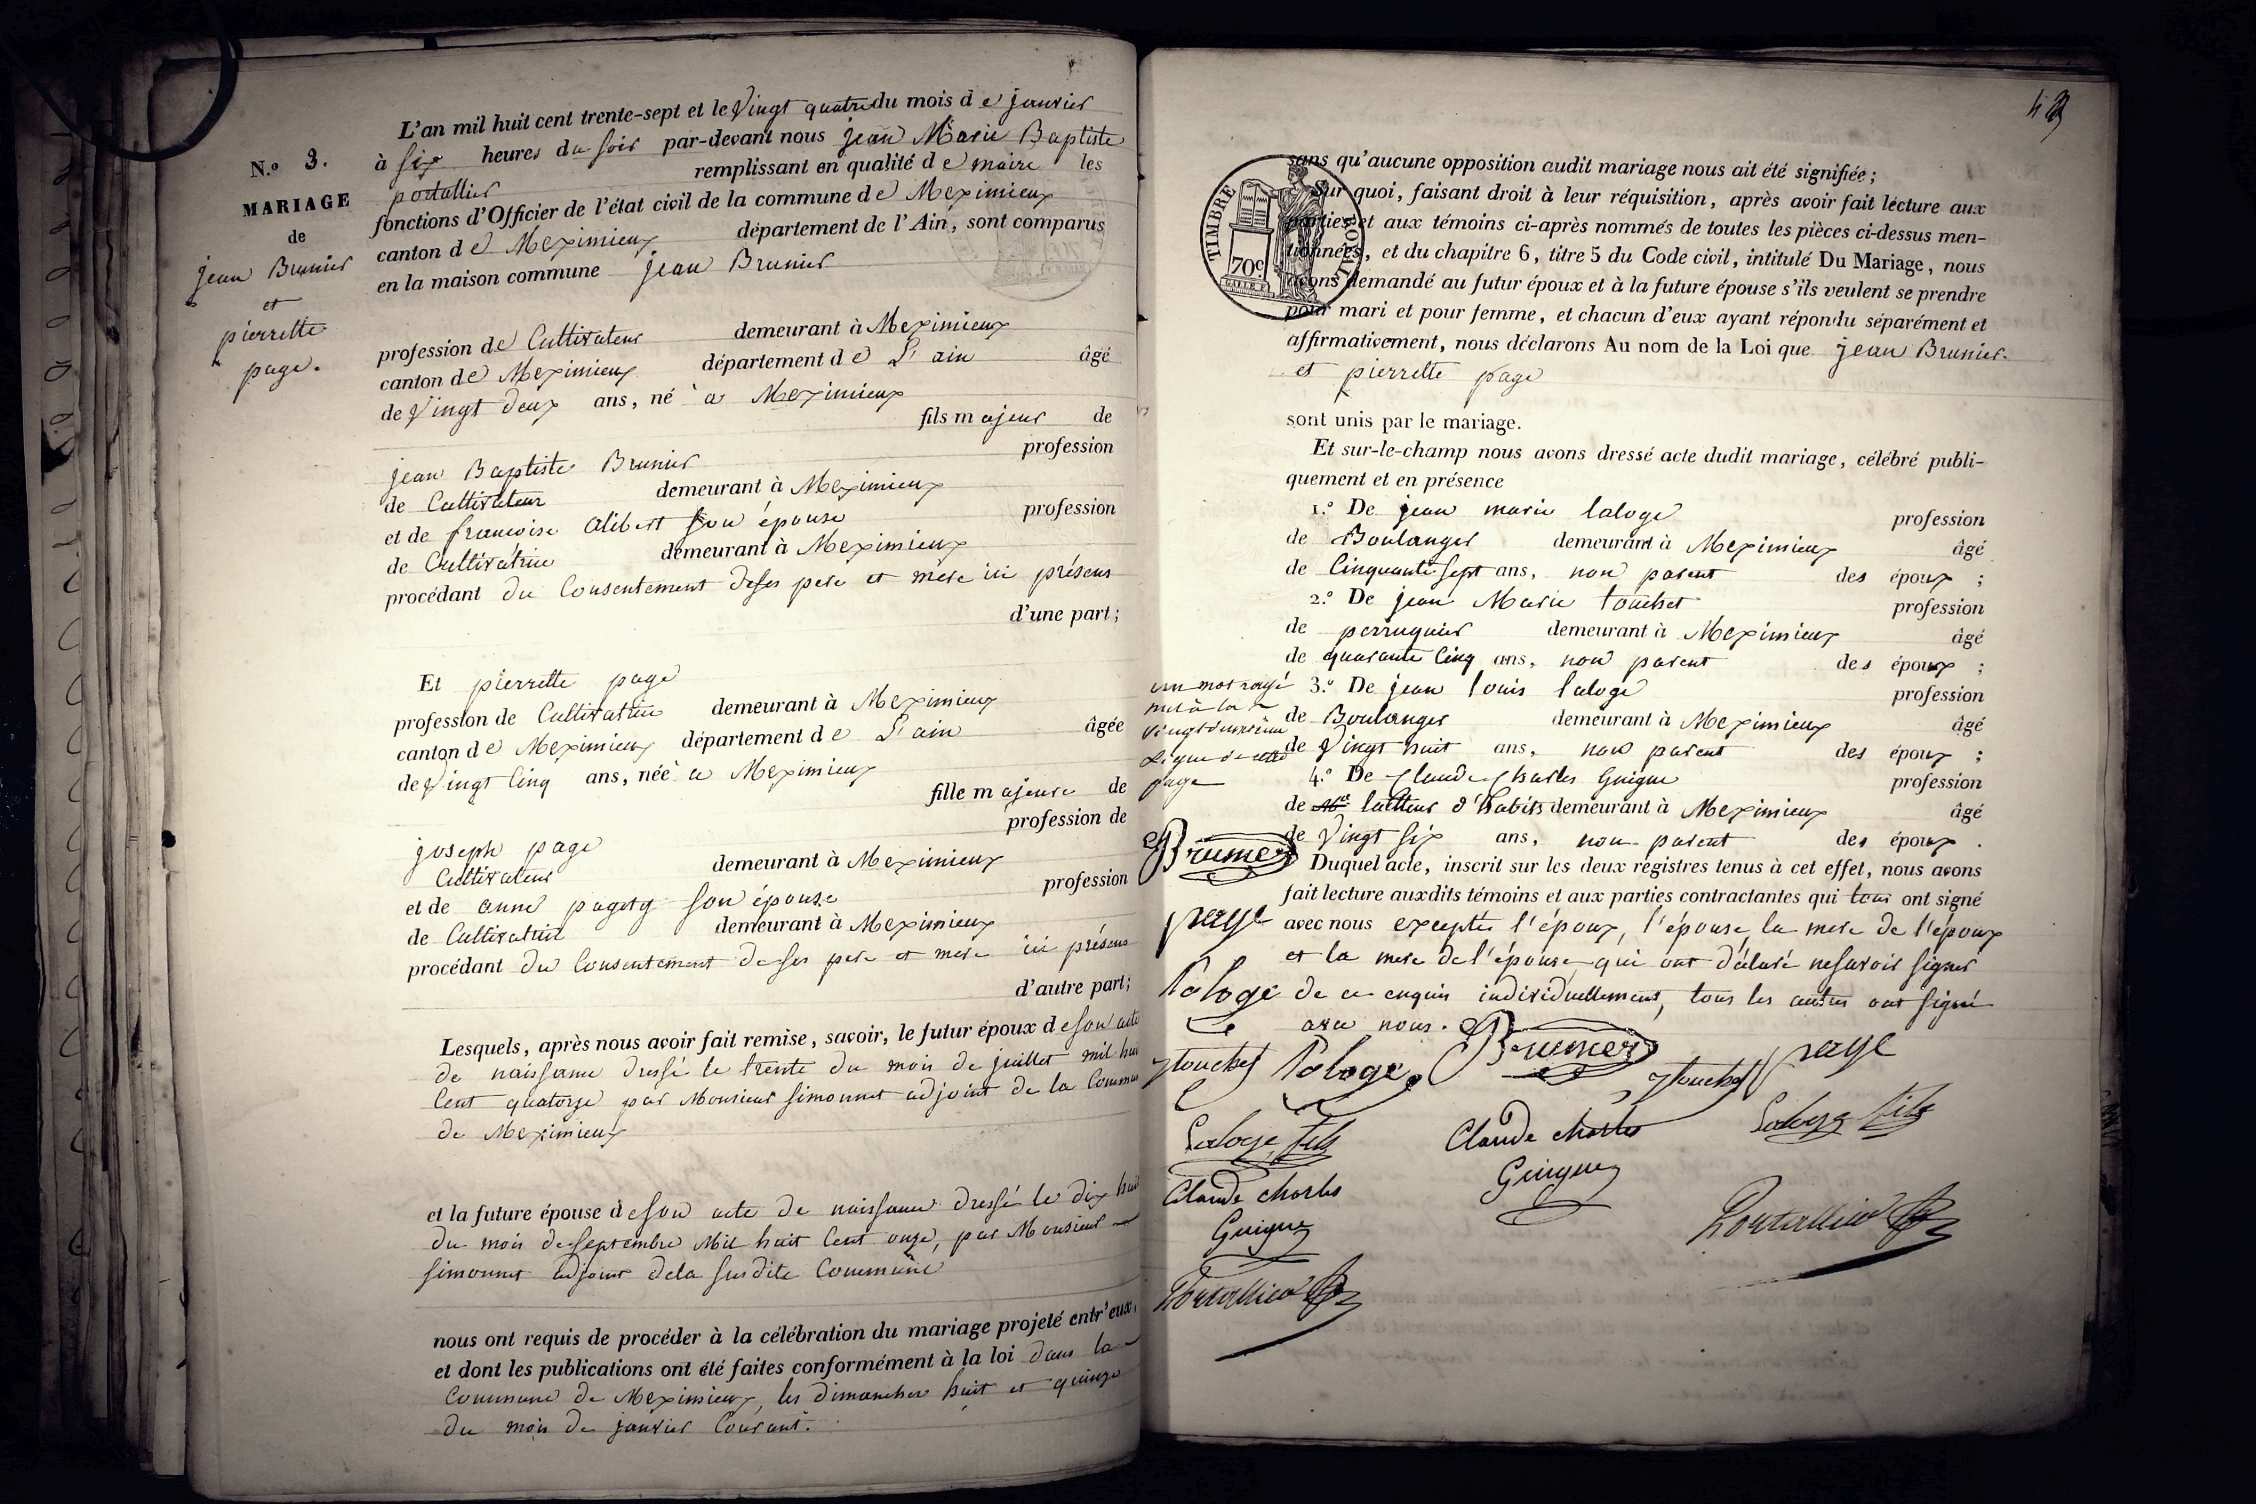 N.o 3.
MARIAGE
de
jean Brunier
et
pierrette
page.
L'an mil huit cent trente-sept et le Vingt quatre du mois de janvier
à six heures du soir par-devant nous jean Marie Baptiste
portallier remplissant en qualité de maire les
fonctions d'Officier de l'état civil de la commune de Meximieux
canton de Meximieux département de l'Ain, sont comparus
en la maison commune jean Brunier
profession de Cultivateur demeurant à Meximieux
canton de Meximieux département de L'ain âgé
de Vingt deux ans, né à Meximieux
fils majeur de
jean Baptiste Brunier profession
de Cultivateur demeurant à Meximieux
et de francoise alibert son épouse profession
de Cultivatrice demeurant à Meximieux
procédant du Consentement de ses pere et mere ici présens
d'une part;
Et pierrette page
profession de Cultivatrice demeurant à Meximieux
canton de Meximieux département de L'ain âgée
de Vingt Cinq ans, née à Meximieux
fille majeure de
joseph page profession de
Cultivateur demeurant à Meximieux
et de anne son épouse profession
de Cultivatrice demeurant à Meximieux
procédant du Consentement de ses pere et mere ici présens
d'autre part;
Lesquels, après nous avoir fait remise, savoir, le futur époux de son acte
de naissance dressé le trente du mois de juillet mil huit
Cent quatorze par Monsieur simonnet adjoint de la Commune
de Meximieux
et la future épouse de son acte de naissance dressé le dix huit
du mois de septembre Mil huit Cent onze, par Monsieur
simonnet adjoint de la susdite Commune
nous ont requis de procéder à la célébration du mariage projeté entr'eux,
et dont les publications ont été faites conformément à la loi dans la
Commune de Meximieux, les dimanches huit et quinze
du mois de janvier Courant.
TIMBRE ROYAL
70c
sans qu'aucune opposition audit mariage nous ait été signifiée;
Sur quoi, faisant droit à leur réquisition, après avoir fait lecture aux
parties et aux témoins ci-après nommés de toutes les pièces ci-dessus men-
tionnées, et du chapitre 6, titre 5 du Code civil, intitulé Du Mariage, nous
avons demandé au futur époux et à la future épouse s'ils veulent se prendre
pour mari et pour femme, et chacun d'eux ayant répondu séparément et
affirmativement, nous déclarons Au nom de la Loi que jean Brunier
et pierrette page
sont unis par le mariage.
Et sur-le-champ nous avons dressé acte dudit mariage, célébré publi-
quement et en présence
1.o De jean marie laloge profession
de Boulanger demeurant à Meximieux âgé
de Cinquante sept ans, non parent des époux;
2.o De jean Marie touchet profession
de perruquier demeurant à Meximieux âgé
de quarante Cinq ans, non parent des époux;
3.o De jean louis laloge profession
de Boulanger demeurant à Meximieux âgé
de Vingt huit ans, non parent des époux;
4.o De Claude Charles Guigue profession
de tailleur d'habits demeurant à Meximieux âgé
de Vingt six ans, non parent des époux.
un mot rayé
nul à la
vingt deuxième
ligne de cette
page
Duquel acte, inscrit sur les deux registres tenus à cet effet, nous avons
fait lecture auxdits témoins et aux parties contractantes qui tous ont signé
avec nous exceptés l'époux, l'épouse, la mere de l'époux
et la mere de l'épouse, qui ont déclaré ne savoir signer
de ce enquis individuellement, tous les autres ont signé
avec nous.
Brunier
page
Laloge
touchet
Laloge fils
Claude charles
Guigue
Portallier
Laloge
Brunier
touchet
page
Claude charles
Guigue
Laloge fils
Portallier